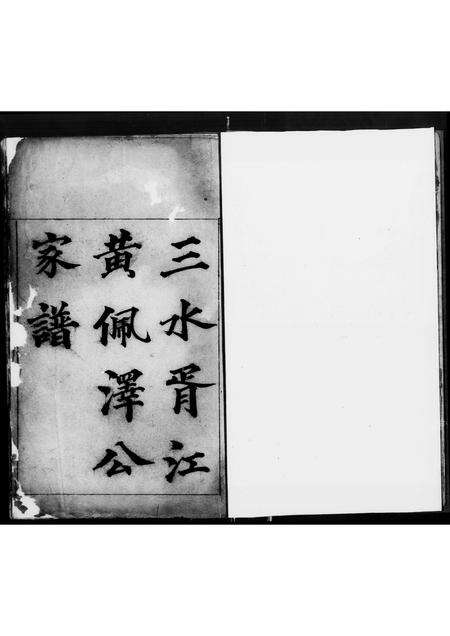 三水胥江
黄佩澤公
家譜